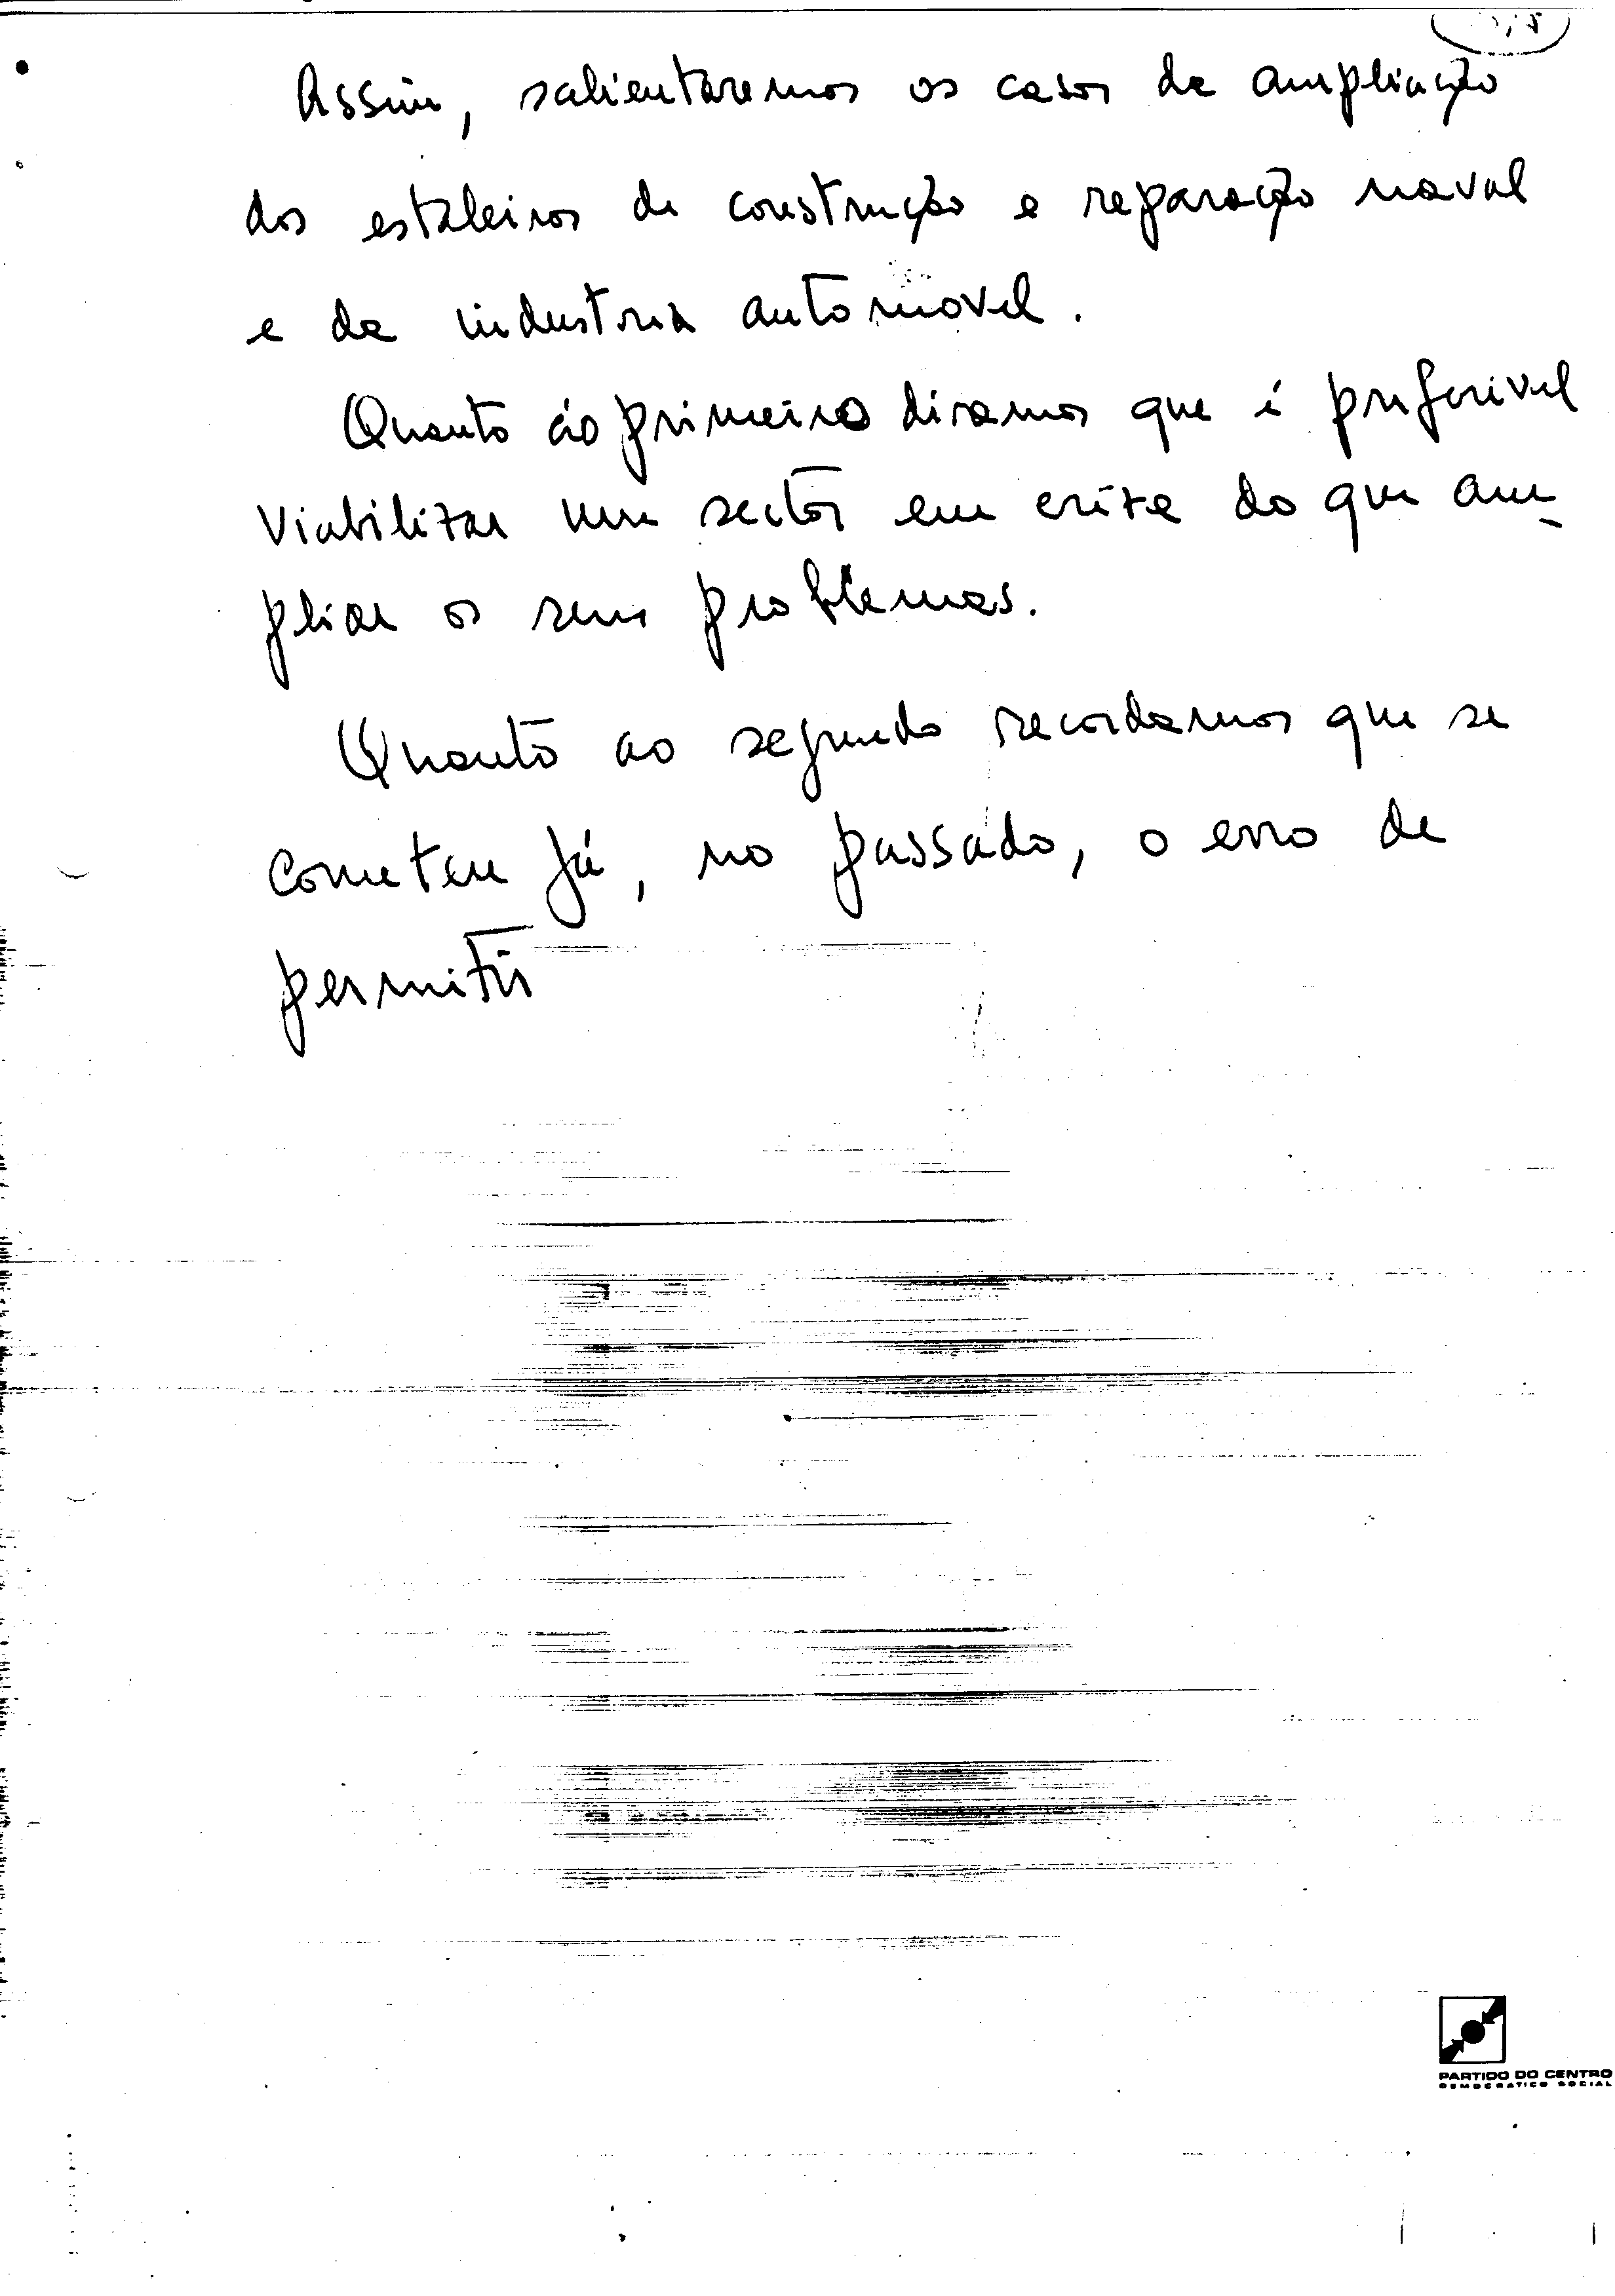 Assim, salientaremos os casos da ampliação
dos estaleiros de construção e reparação naval
e da industria automóvel.
Quanto ao primeiro diramos que é preferivel
viabilizar um sector em crise do que am-
pliar os seus problemas.
Quanto ao segundo recordamos que se
cometeu já, no passado, o erro de
permitir
PARTIDO DO CENTRO
DEMOCRATICO SOCIAL